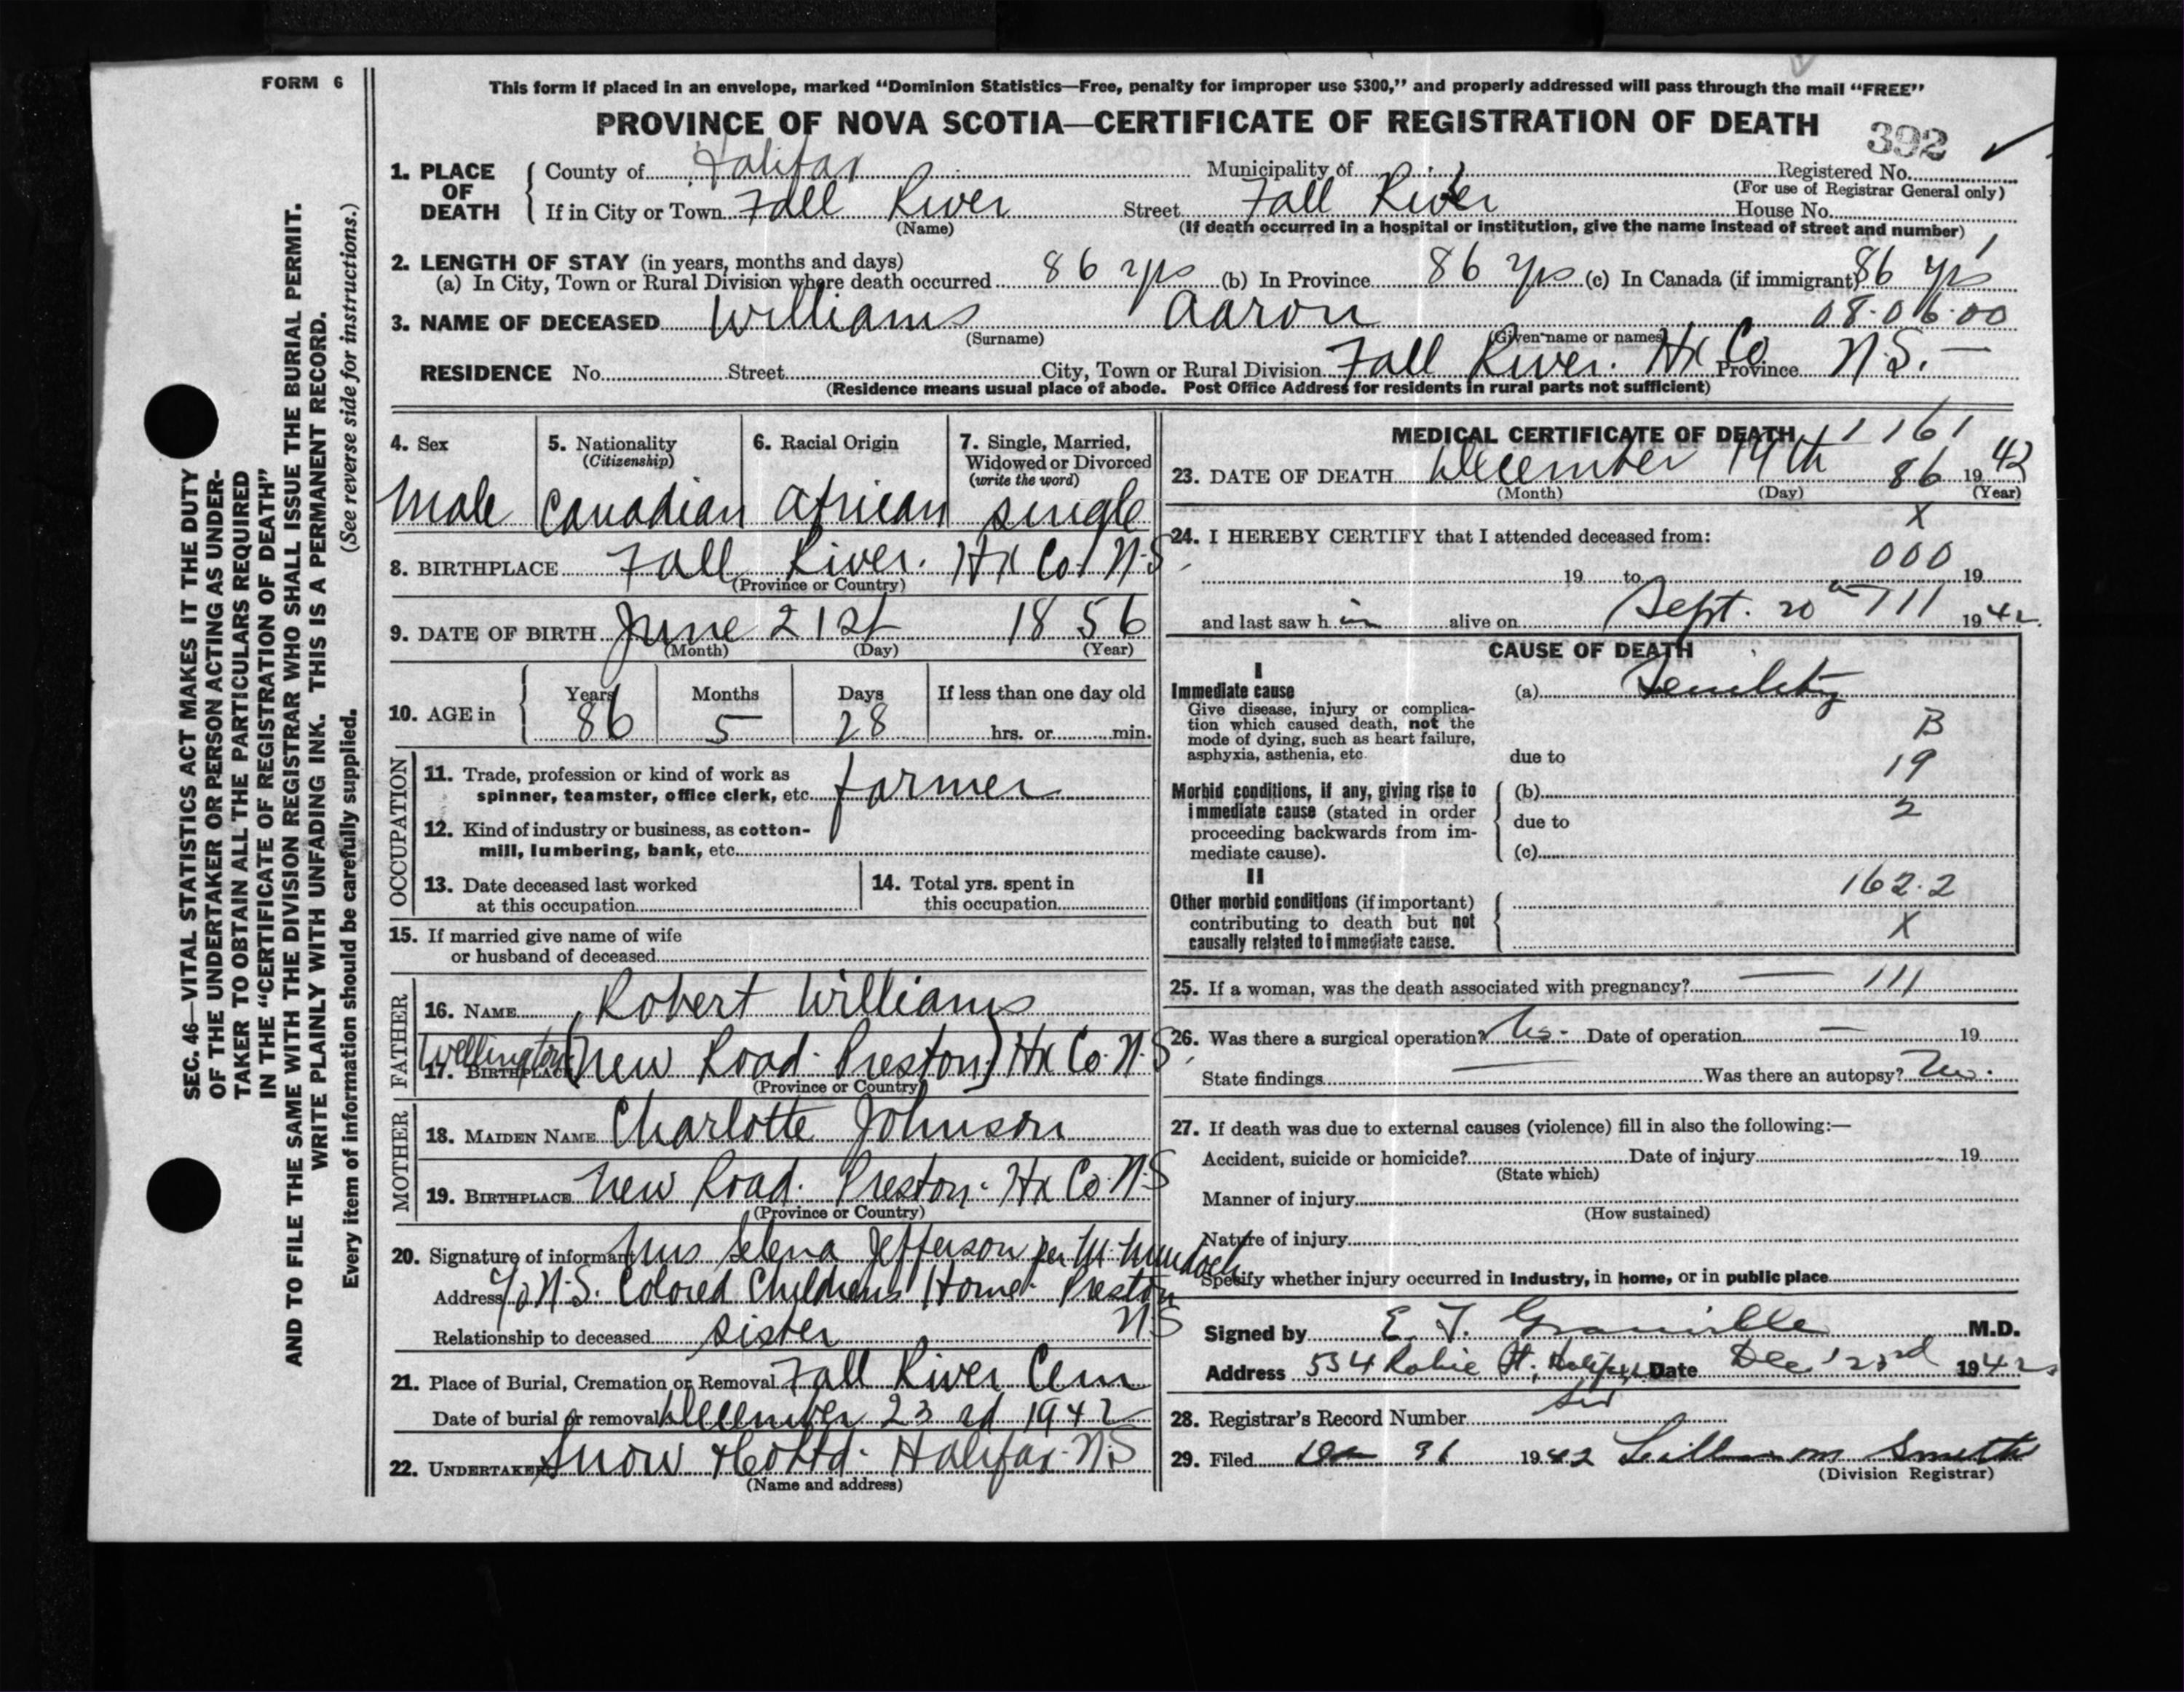 FORM 6
This form if placed in an envelope, marked “Dominion Statistics—Free, penalty for improper use $300,” and properly addressed will pass through the mail “FREE”
PROVINCE OF NOVA SCOTIA—CERTIFICATE OF REGISTRATION OF DEATH
392
SEC. 46—VITAL STATISTICS ACT MAKES IT THE DUTY
OF THE UNDERTAKER OR PERSON ACTING AS UNDER-
TAKER TO OBTAIN ALL THE PARTICULARS REQUIRED
IN THE “CERTIFICATE OF REGISTRATION OF DEATH”
AND TO FILE THE SAME WITH THE DIVISION REGISTRAR WHO SHALL ISSUE THE BURIAL PERMIT.
WRITE PLAINLY WITH UNFADING INK. THIS IS A PERMANENT RECORD.
Every item of information should be carefully supplied. (See reverse side for instructions.)
1. PLACE OF DEATH
County of Halifax Municipality of Registered No.
(For use of Registrar General only)
If in City or Town Fall River Street Fall River House No.
(Name) (If death occurred in a hospital or institution, give the name instead of street and number)
2. LENGTH OF STAY (in years, months and days)
(a) In City, Town or Rural Division where death occurred 86 yrs (b) In Province 86 yrs (c) In Canada (if immigrant) 86 yrs
3. NAME OF DECEASED Williams Aaron 08.06.00
(Surname) (Given name or names)
RESIDENCE No. Street City, Town or Rural Division Fall River. Hx Co Province N.S. —
(Residence means usual place of abode. Post Office Address for residents in rural parts not sufficient)
4. Sex
Male
5. Nationality
(Citizenship)
Canadian
6. Racial Origin
African
7. Single, Married,
Widowed or Divorced
(write the word)
single
8. BIRTHPLACE Fall River. Hx Co. N.S
(Province or Country)
9. DATE OF BIRTH June 21st 1856
(Month) (Day) (Year)
10. AGE in
Years Months Days If less than one day old
86 5 28 hrs. or min.
OCCUPATION
11. Trade, profession or kind of work as
spinner, teamster, office clerk, etc. farmer
12. Kind of industry or business, as cotton-
mill, lumbering, bank, etc.
13. Date deceased last worked
at this occupation
14. Total yrs. spent in
this occupation
15. If married give name of wife
or husband of deceased
FATHER
16. NAME Robert Williams
17. BIRTHPLACE Wellington (New Road. Preston) Hx Co. N.S
(Province or Country)
MOTHER
18. MAIDEN NAME Charlotte Johnson
19. BIRTHPLACE New Road. Preston. Hx Co. N.S
(Province or Country)
20. Signature of informant Mrs Selena Jefferson per M. Murdoch
Address c/o N.S. Colored Childrens Home. Preston
N.S
Relationship to deceased sister
21. Place of Burial, Cremation or Removal Fall River Cem
Date of burial or removal December 23rd 1942
22. UNDERTAKER Snow & Co Ltd. Halifax. N.S
(Name and address)
MEDICAL CERTIFICATE OF DEATH 1161
23. DATE OF DEATH December 19th 86 1942
(Month) (Day) (Year)
X
24. I HEREBY CERTIFY that I attended deceased from:
000
19 to 19
and last saw h im alive on Sept. 20th 711 1942.
CAUSE OF DEATH
I
Immediate cause
Give disease, injury or complica-
tion which caused death, not the
mode of dying, such as heart failure,
asphyxia, asthenia, etc.
(a) Senility
B
due to 19
Morbid conditions, if any, giving rise to
immediate cause (stated in order
proceeding backwards from im-
mediate cause).
(b)
2
due to
(c)
II
Other morbid conditions (if important)
contributing to death but not
causally related to immediate cause.
162.2
X
25. If a woman, was the death associated with pregnancy? — 111
26. Was there a surgical operation? No. Date of operation — 19
State findings — Was there an autopsy? No.
27. If death was due to external causes (violence) fill in also the following:—
Accident, suicide or homicide? Date of injury 19
(State which)
Manner of injury
(How sustained)
Nature of injury
Specify whether injury occurred in Industry, in home, or in public place
Signed by E. F. Granville M.D.
Address 534 Robie St., Halifax Date Dec. 23rd 1942
28. Registrar's Record Number
29. Filed Dec 31 1942 Lillian M Smith
(Division Registrar)